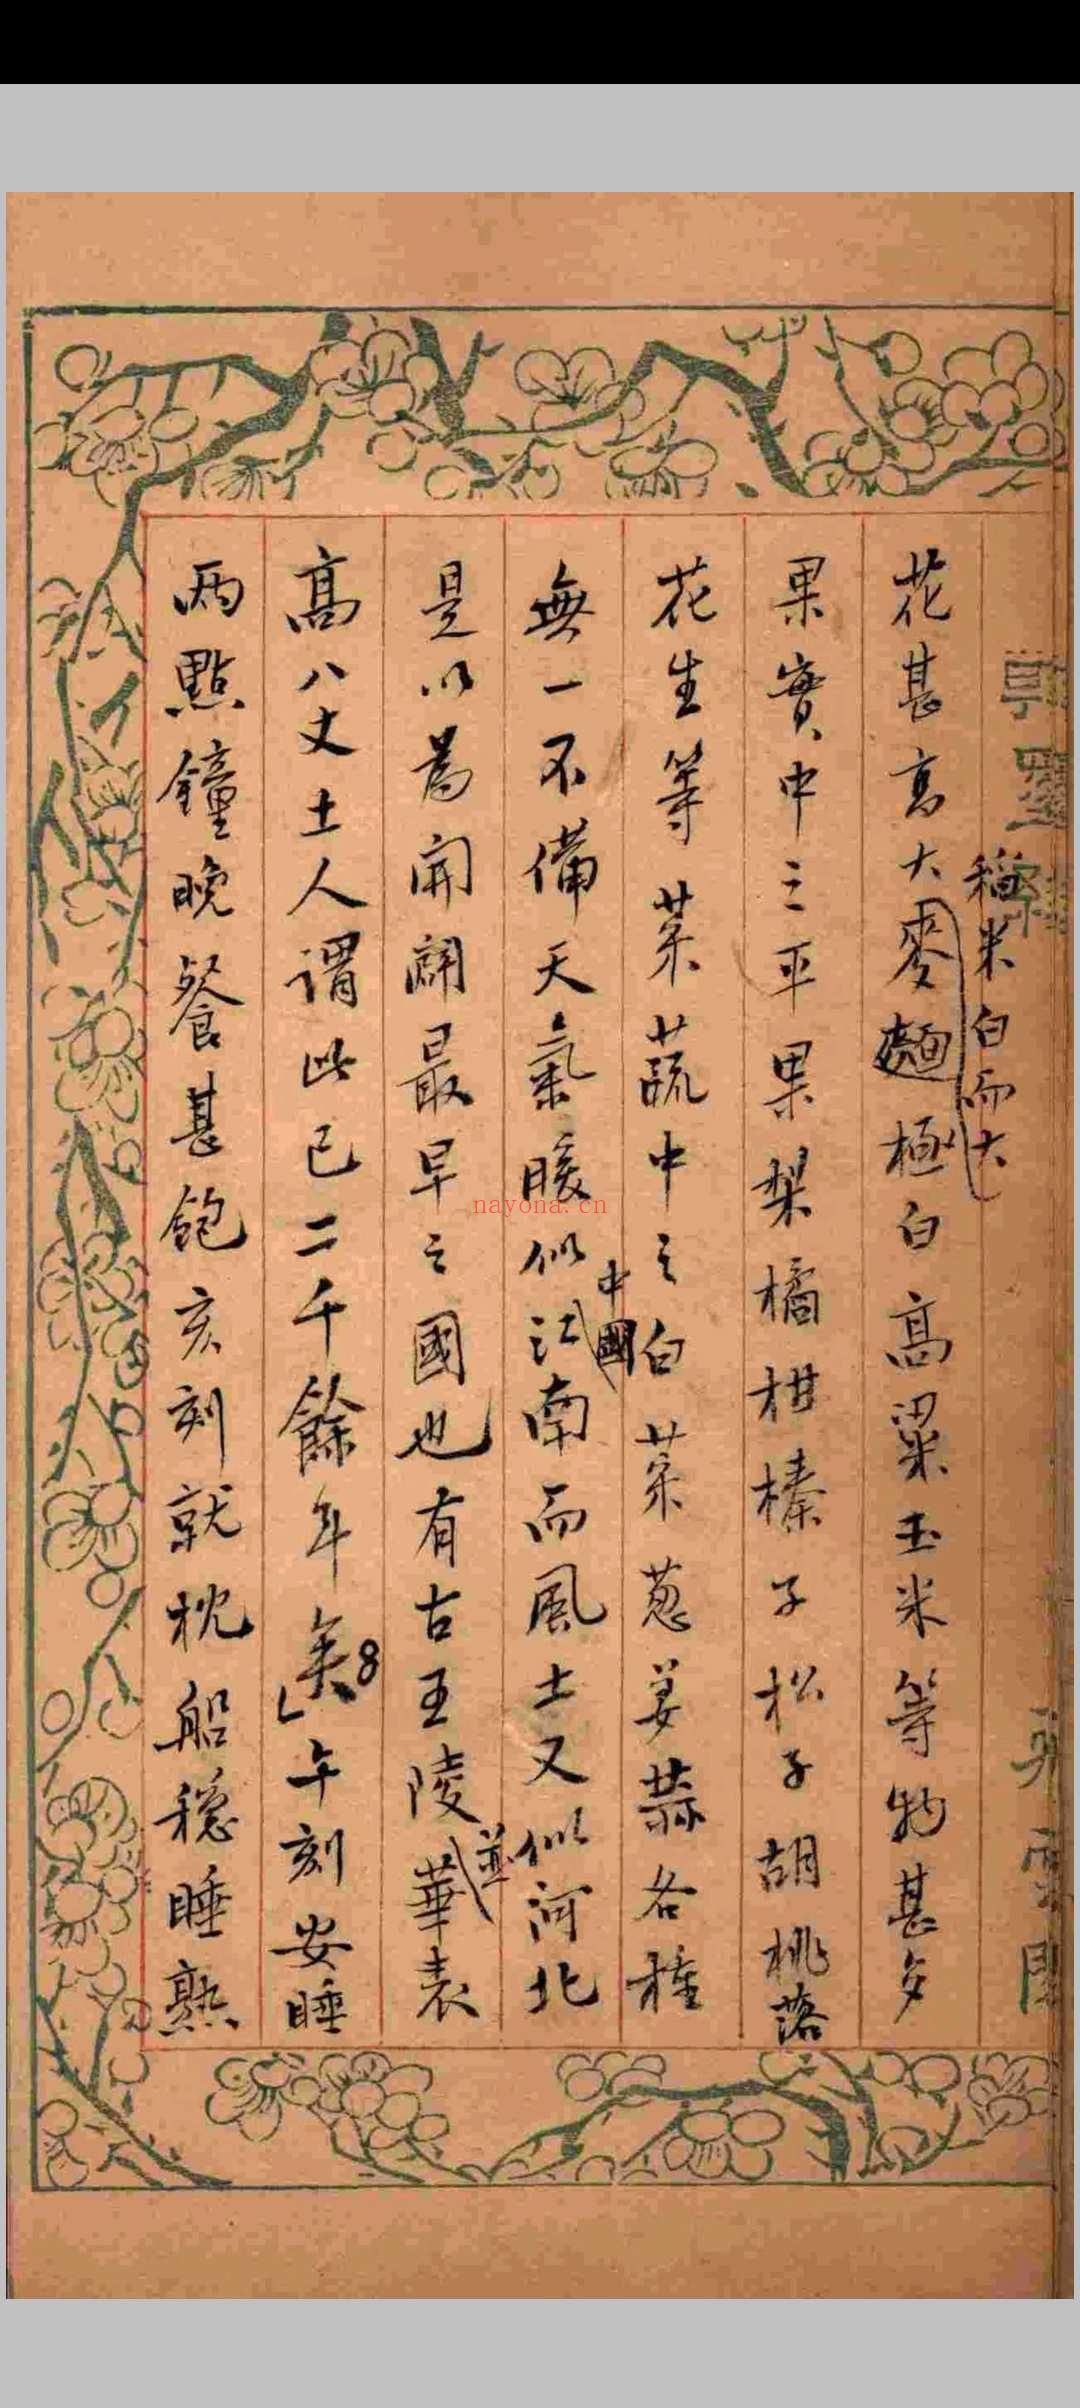 花甚高大麥麵極白高粱玉米等物甚多
稻米白而大
果實中之平果梨橘柑榛子松子胡桃落
花生等菜蔬中之白菜葱姜蒜各種
無一不備天氣暖似江南而風土又似河北
中國
是以為開闢最早之國也有古王陵華表
並
高八丈土人謂此已二千餘年矣8午刻安睡
兩點鐘晚餐甚飽亥刻就枕船穩睡熟
nayona.cn